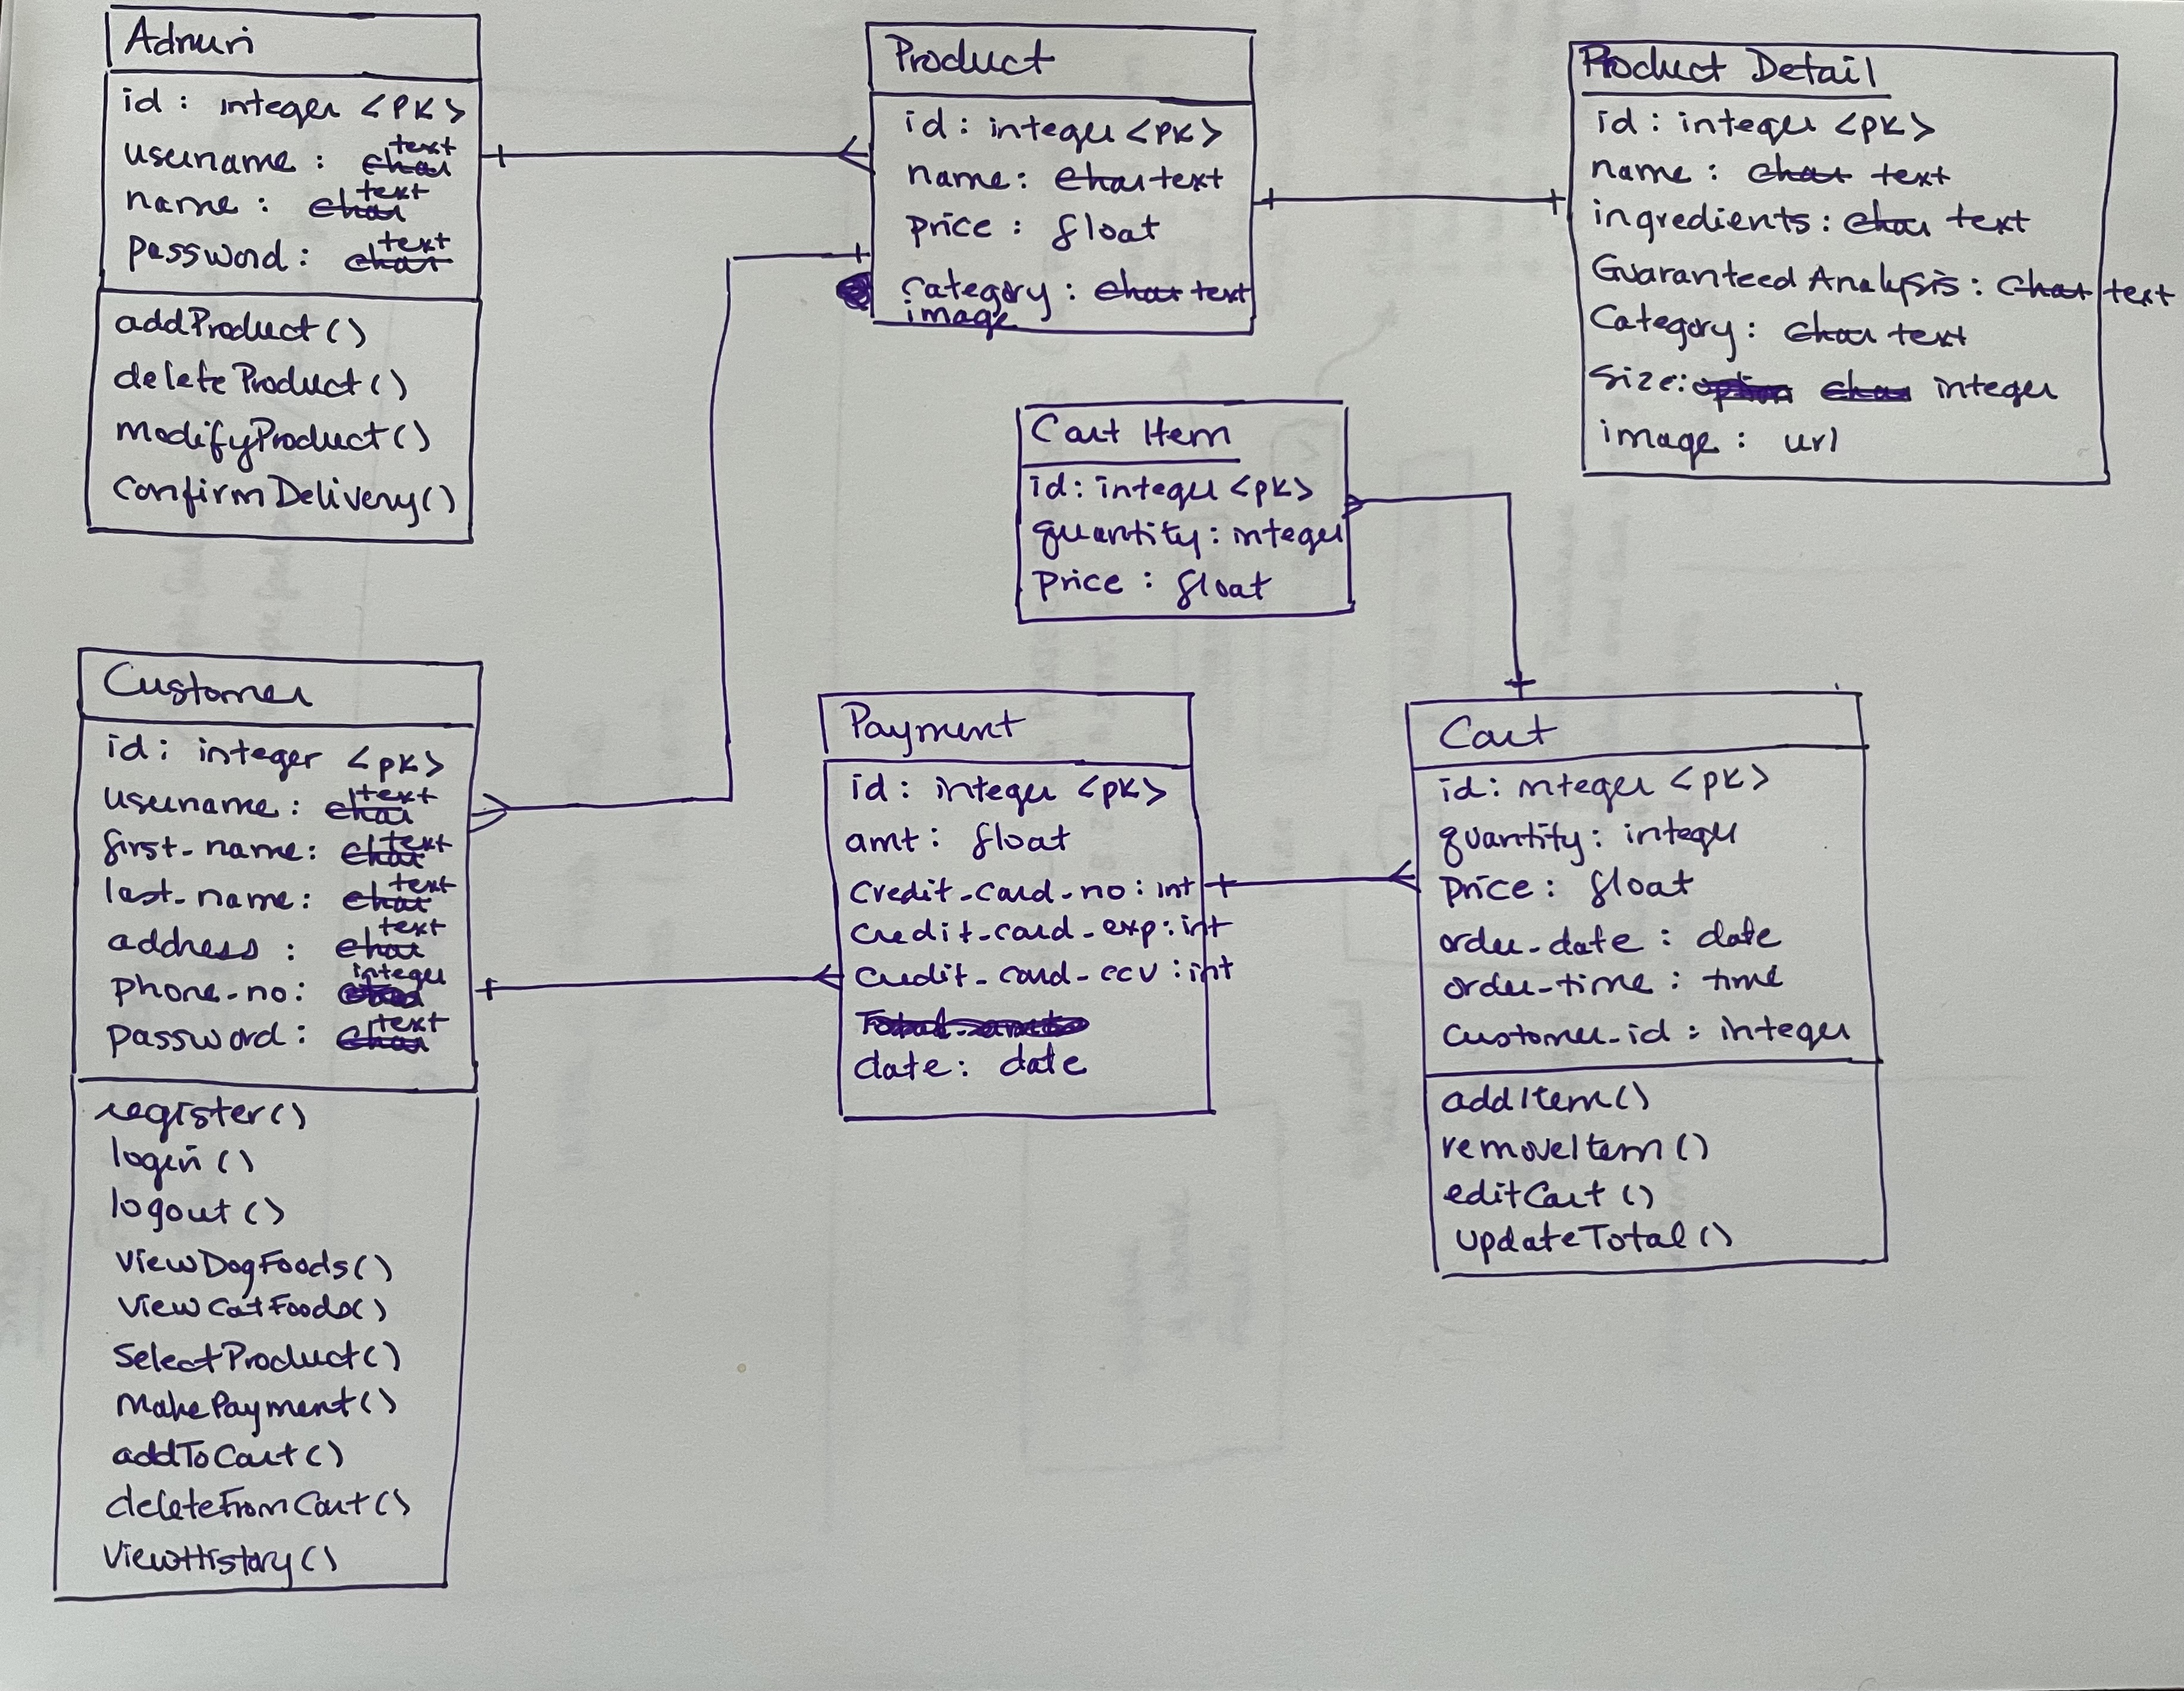 Admin
id : integer <PK>
username : char text
name : char text
password : char text
addProduct()
deleteProduct()
modifyProduct()
confirmDelivery()
Product
id : integer <PK>
name : char text
price : float
category : char text
image
Product Detail
id : integer <PK>
name : char text
ingredients : char text
Guaranteed Analysis : char text
Category : char text
Size : option char integer
image : url
Cart Item
id : integer <pk>
quantity : integer
Price : float
Customer
id : integer <pk>
username : char text
first_name : char text
last_name : char text
address : char text
phone_no : integer
password : char text
register()
login()
logout()
viewDogFoods()
viewCatFoods()
SelectProduct()
makePayment()
addToCart()
deleteFromCart()
viewHistory()
Payment
id : integer <pk>
amt : float
credit_card_no : int
credit_card_exp : int
credit_card_ccv : int
date : date
Cart
id : integer <pk>
quantity : integer
price : float
order_date : date
order_time : time
customer_id : integer
addItem()
removeItem()
editCart()
updateTotal()